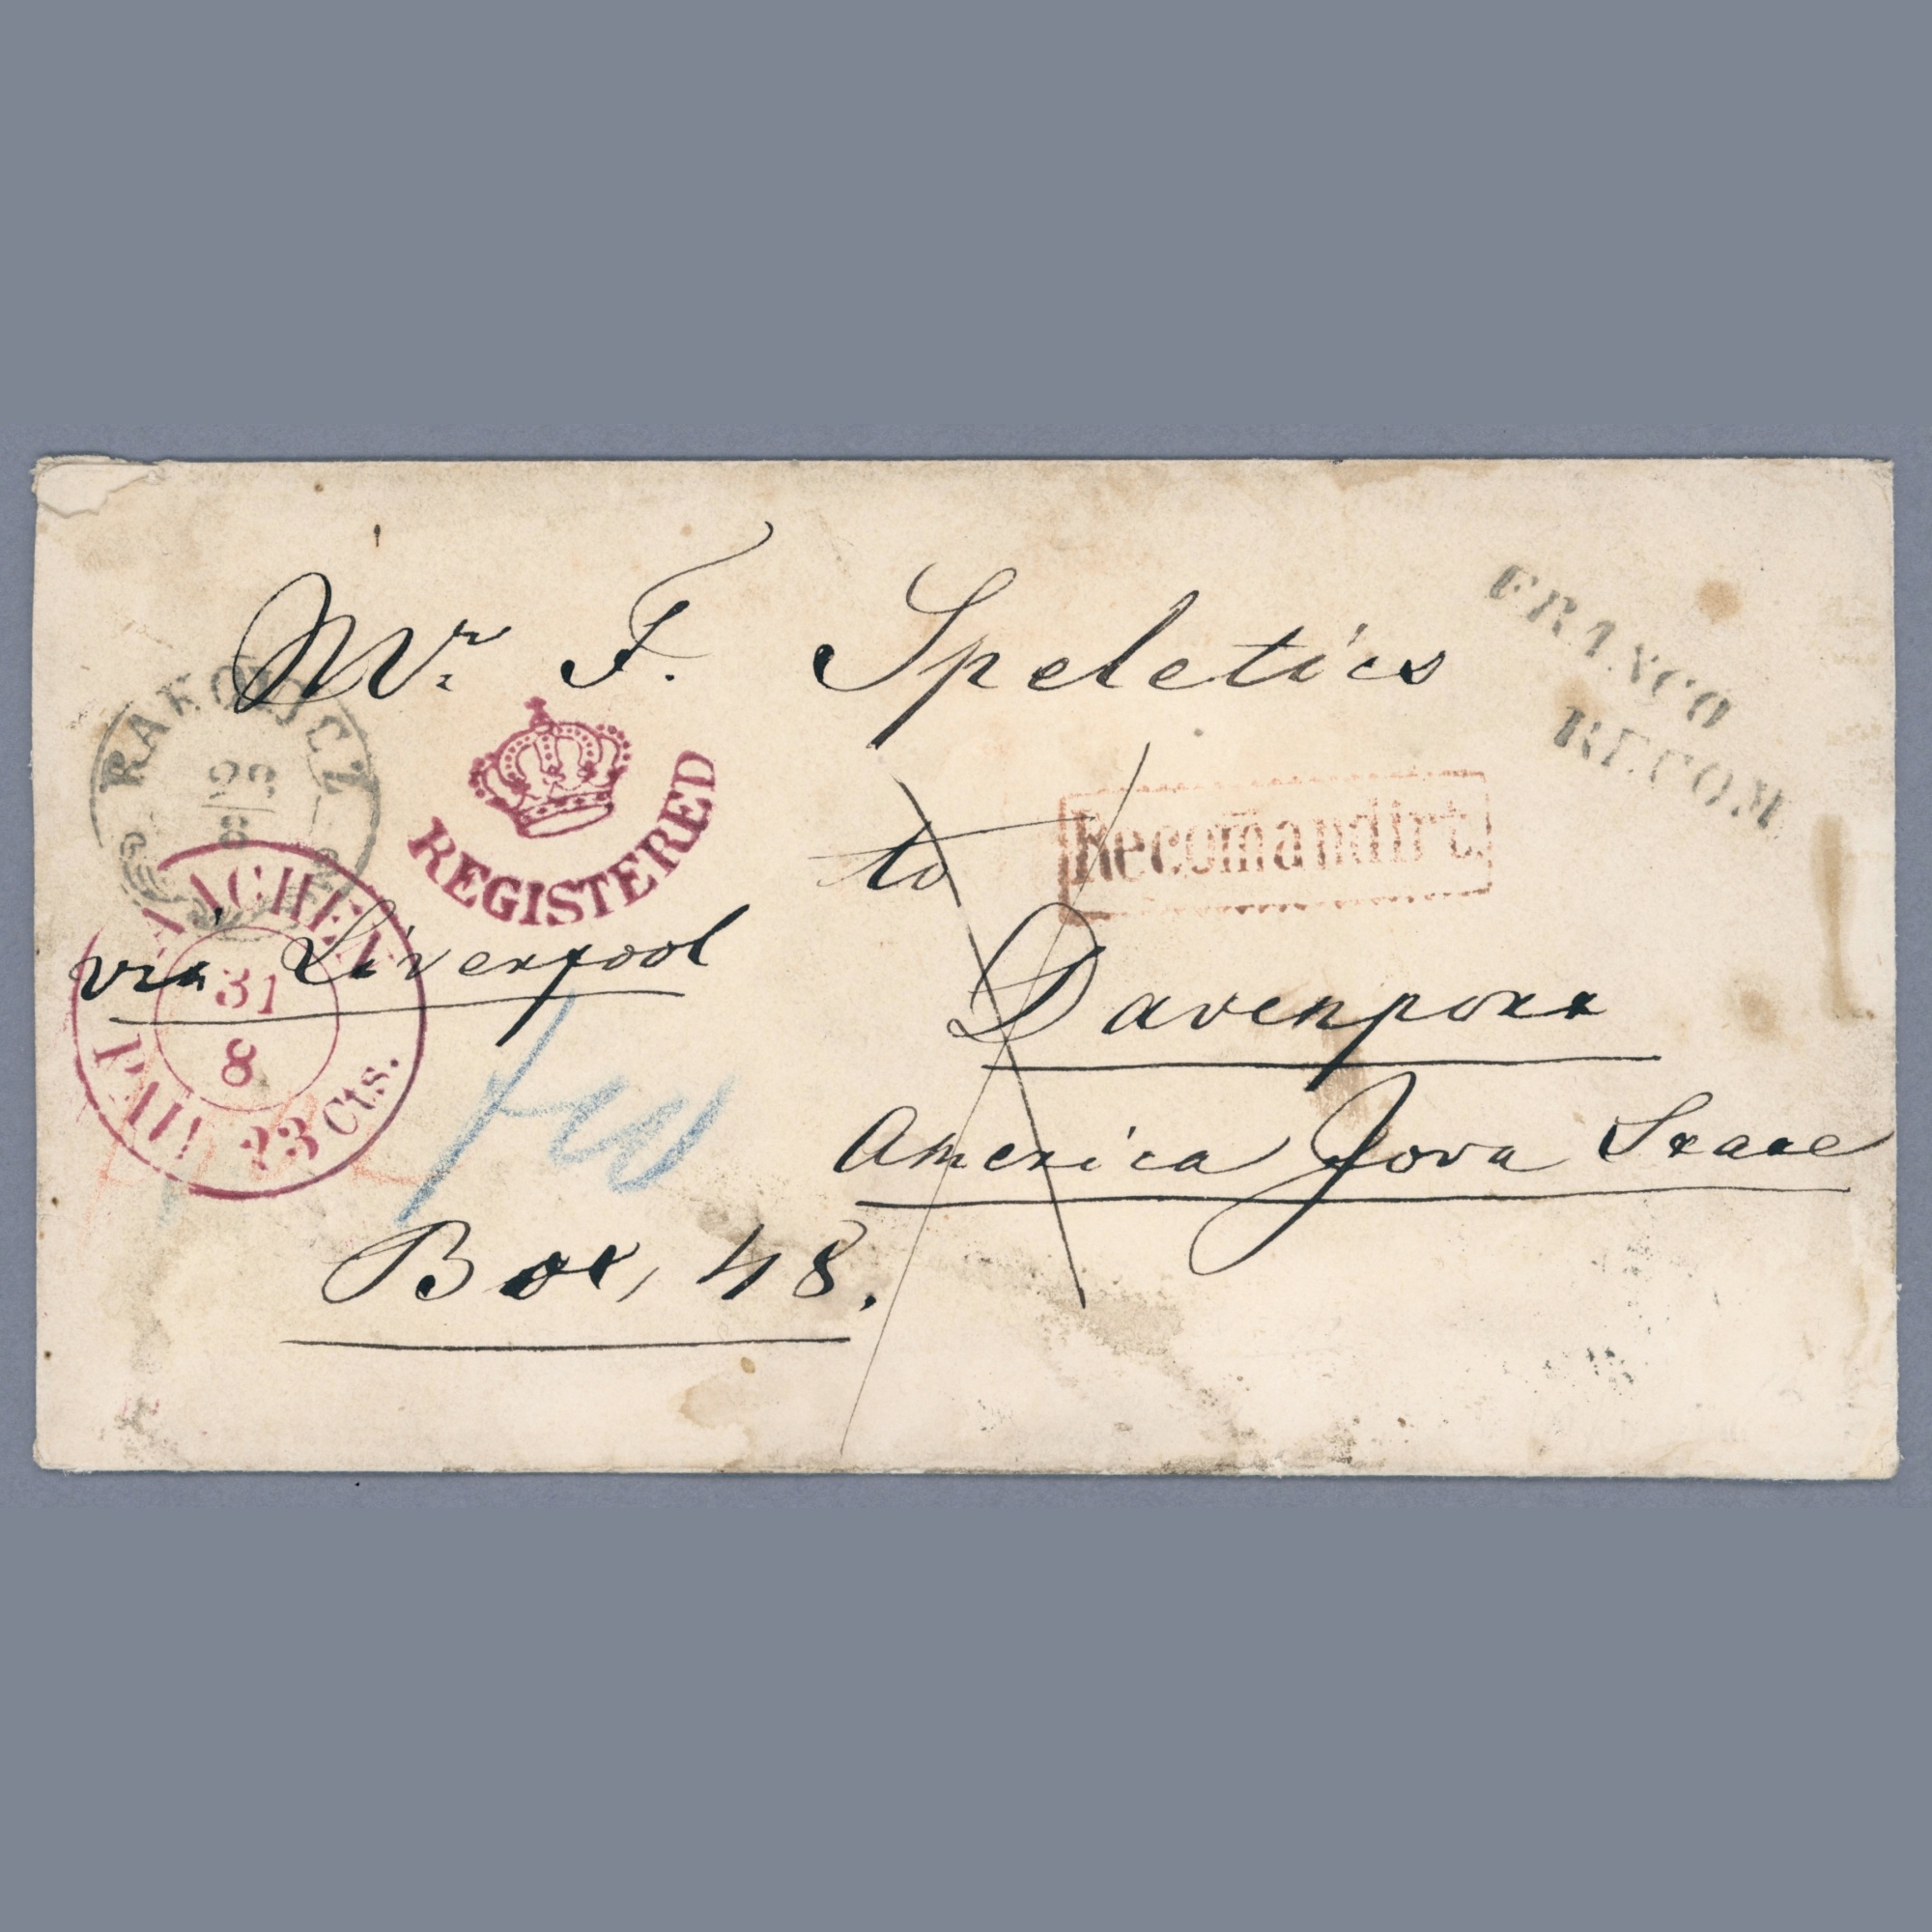 Mr. F. Speletics
FRANCO
RECOM
REGISTERED
to
Recom̃andirt.
via Liverpool
AACHEN
31
8
PAID 23 Cts.
Davenport
America Jova State
Box, 48.